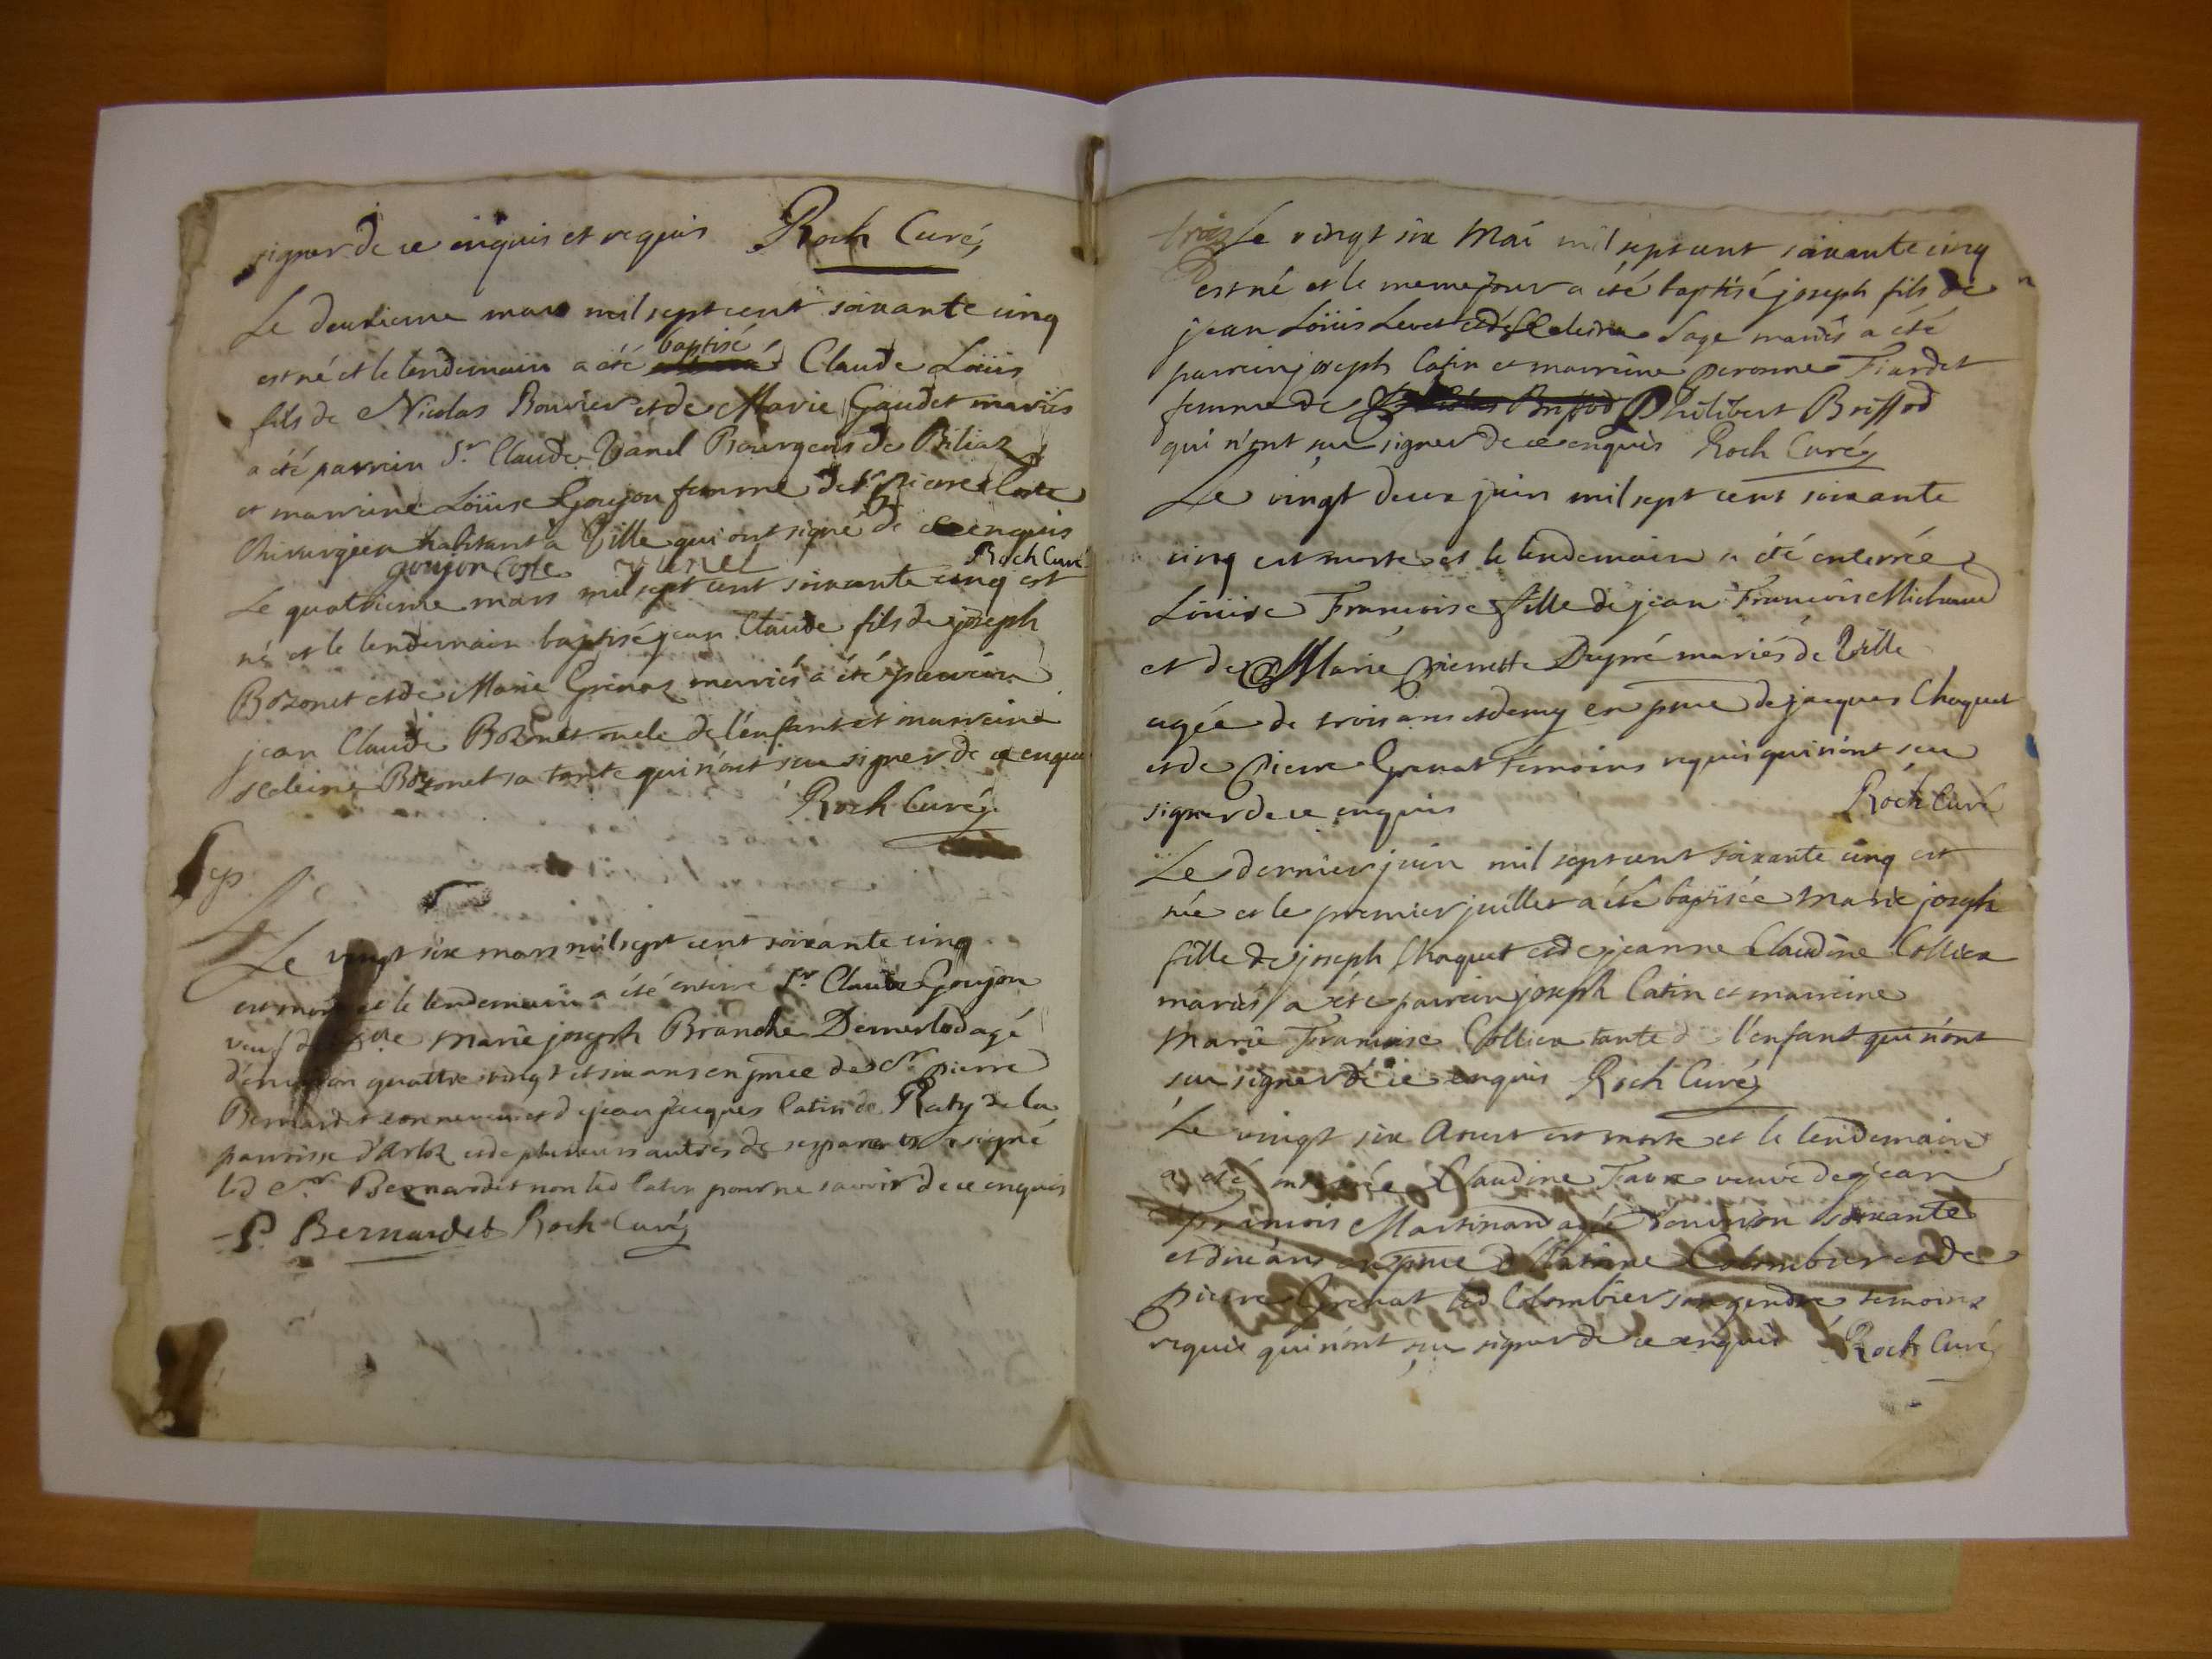 signer de ce enquis et requis Roch Curé
Le deuxieme mars mil sept cent soixante cinq
est né et le lendemain a été baptisé Claude Loüis
fils de Nicolas Bouvier et de Marie Gaudet mariés
a été parrein Sr. Claude Vanel Bourgeois de Biliaz
et marreine Loüise Goujon femme de Sr pierre Coste
Chirurgien habitant a Ville qui ont signé de ce enquis
goujon Coste vanel Roch Curé
Le quatrieme mars mil sept cent soixante cinq est
né et le lendemain baptisé jean Claude fils de joseph
Bozonet et de Marie Grenaz mariés a été parrein
jean Claude Bozonet oncle de l'enfant et marreine
Bozonet sa tante qui n'ont seu signer de ce enquis
Roch Curé
Le vingt six mars mil sept cent soixante cinq
est mort et le lendemain a été enterré Sr. Claude Goujon
veuf marie joseph Branche agé
d'environ quattre vingt et six ans en pnce de Sr pierre
Bernardet son neveu et de jean jacques Catin de Raty de la
parroisse d'Arloz et de plusieurs autres de ses parents a signé
led Sr. Bernardet non led Catin pour ne savoir de ce enquis
P. Bernardet Roch Curé
Le vingt six Mai mil sept cent soixante cinq
est né et le meme jour a été baptisé joseph fils de
jean Loüis Levet et de Sage mariés a été
parrein joseph Catin et marreine peronne Fiardet
femme de Philibert Briffod
qui n'ont seu signer de ce enquis Roch Curé
Le vingt deux juin mil sept cent soixante
cinq est morte et le lendemain a été enterrée
Loüise Francoise fille de jean Francois Michaud
et de Marie pierrette Dupré mariés de Ville
agée de trois ans et demy en pnce de jacques Choquet
et de Pierre Grenat témoins requis qui n'ont seu
signer de ce enquis Roch Curé
Le dernier juin mil sept cent soixante cinq est
née et le premier juillet a été baptisée Marie joseph
fille de joseph Choquet et de jeanne Claudine Collier
mariés a été parrein joseph Catin et marreine
Marie Francoise Collier tante de l'enfant qui n'ont
seu signer de ce enquis Roch Curé
Le vingt six Aoust est morte et le lendemain
a été enterrée Claudine Favre veuve de jean
francois Martinand agée d'environ soixante
et dix ans en pnce Colombier et de
pierre Grenat led Colombier son gendre temoins
requis qui n'ont seu signer de ce enquis Roch Curé